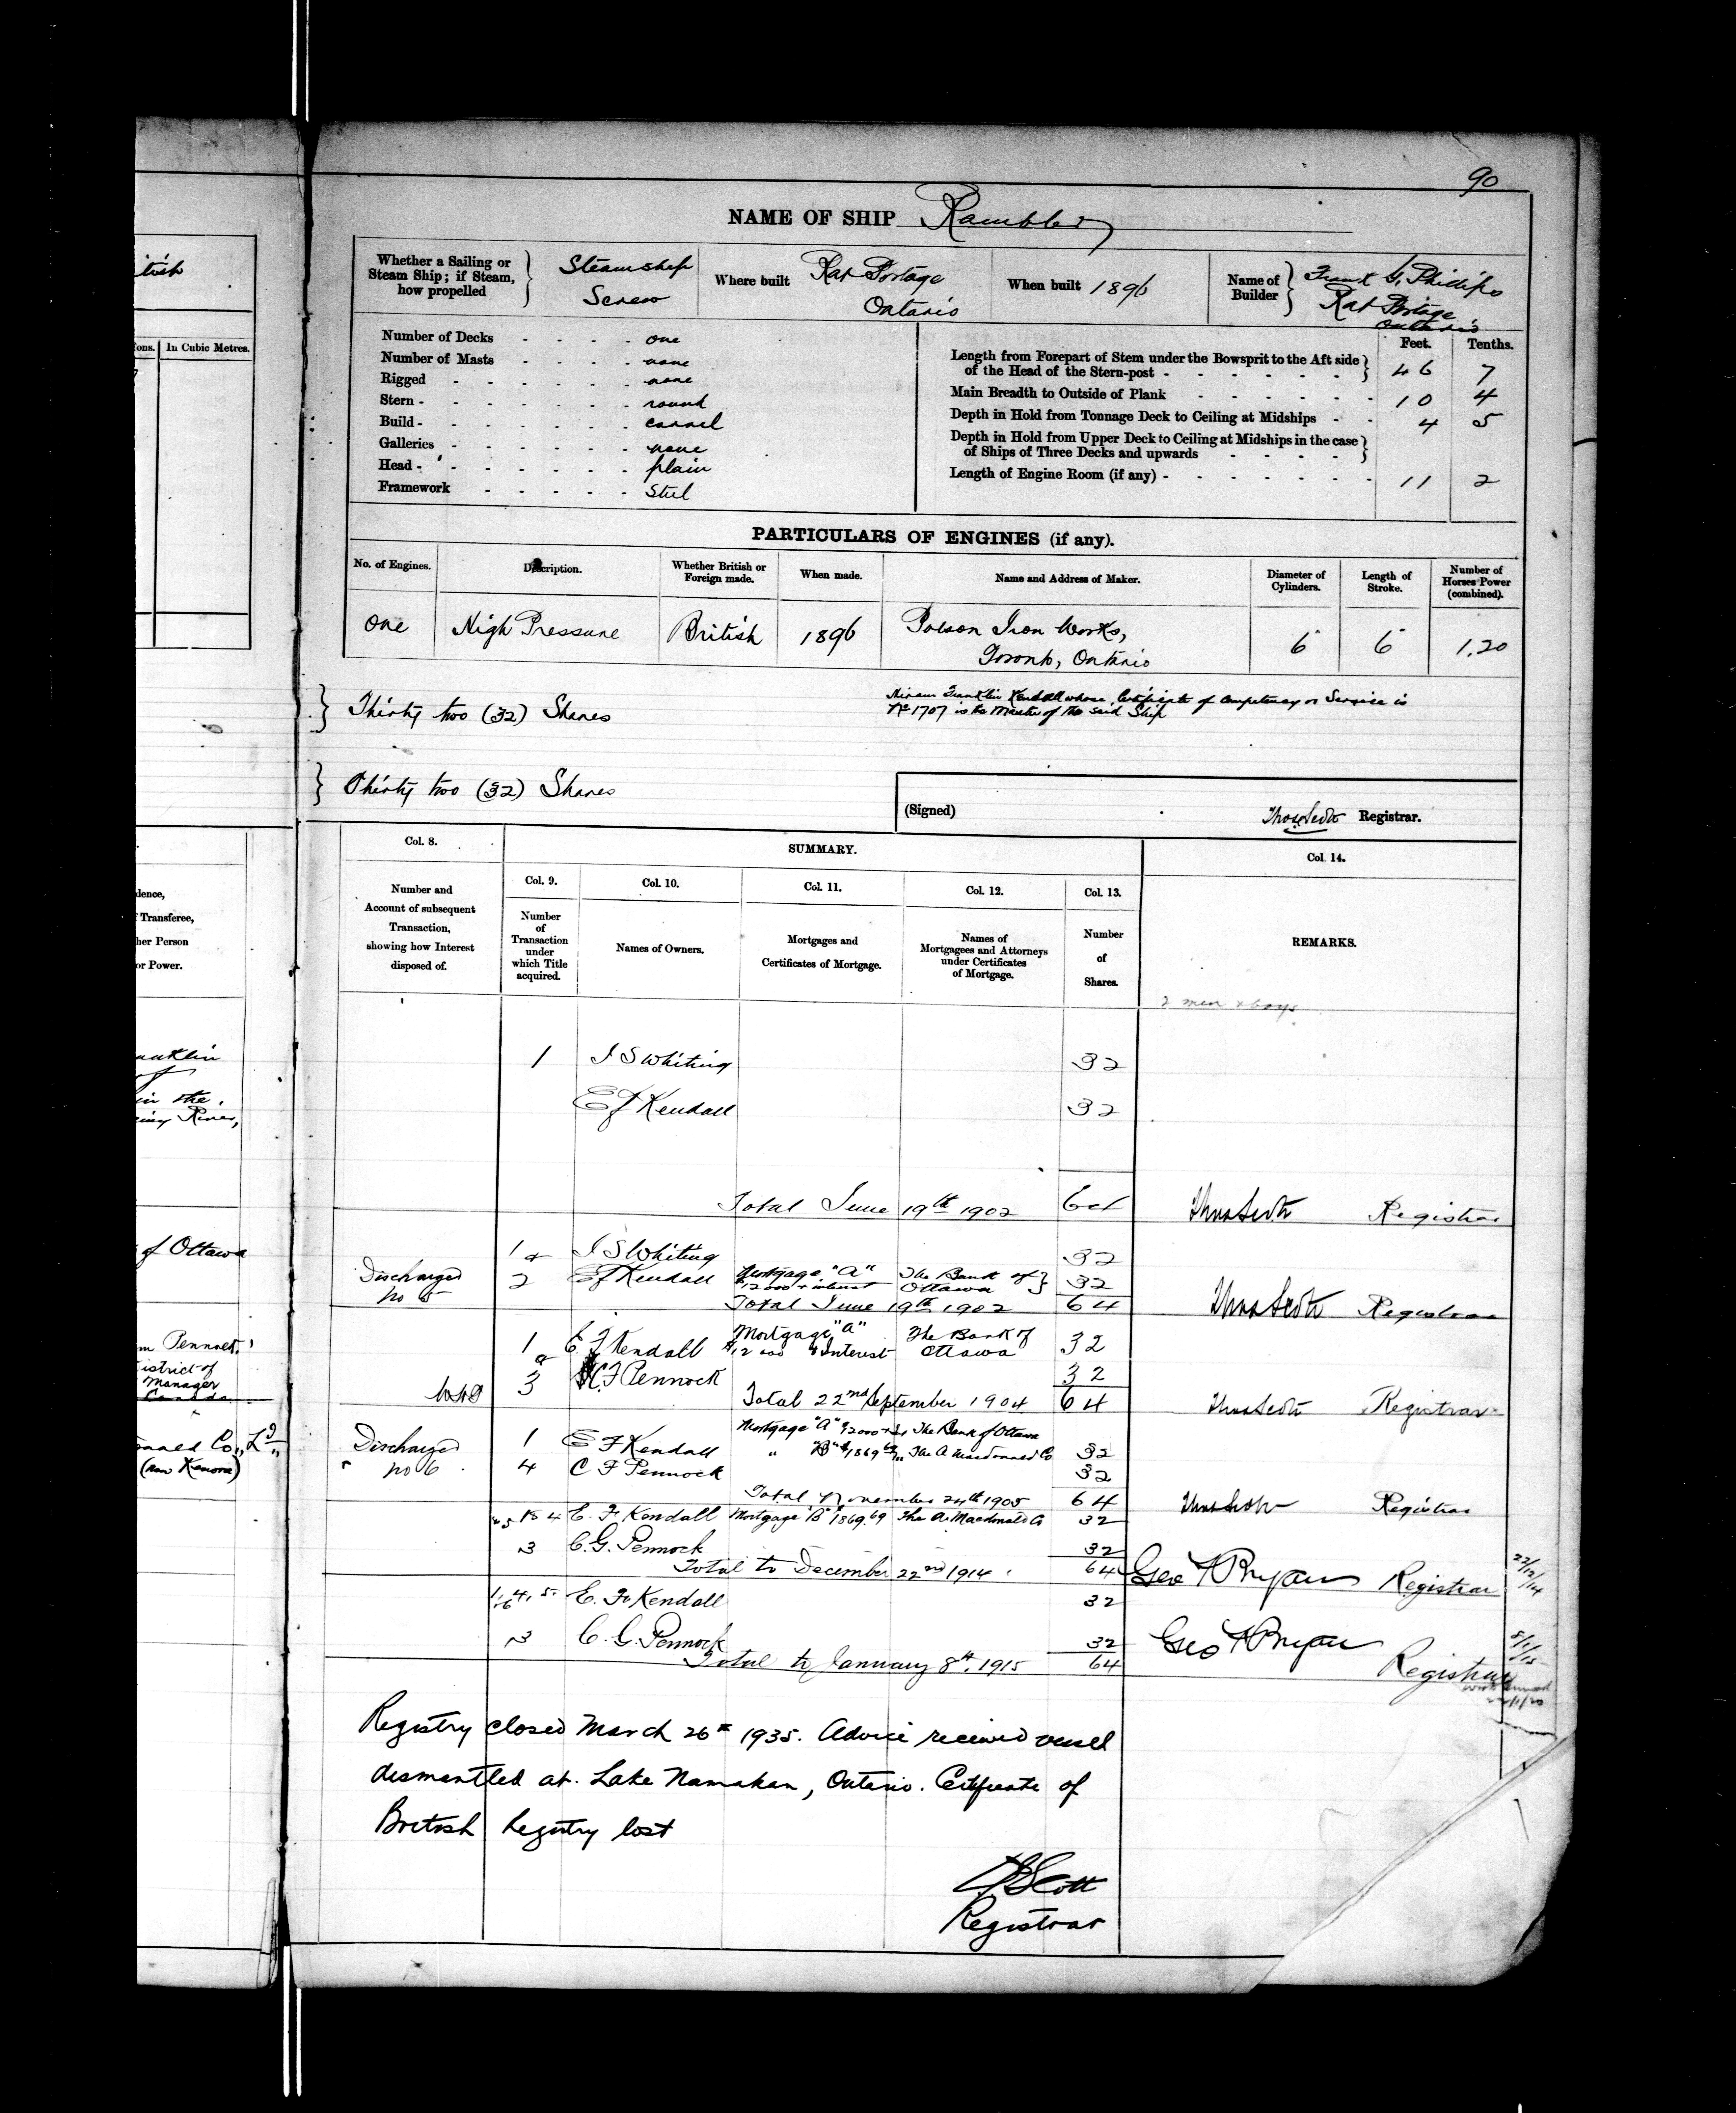 90
NAME OF SHIP Rambler
itish
ons. In Cubic Metres.
Whether a Sailing or Steam Ship; if Steam, how propelled } Steamship Screw
Where built Rat Portage Ontario
When built 1896
Name of Builder } Frank G. Phillips Rat Portage Ontario
Number of Decks - - - - one
Number of Masts - - - - none
Rigged - - - - - - none
Stern - - - - - - - round
Build - - - - - - - carvel
Galleries - - - - - - none
Head - - - - - - - plain
Framework - - - - - Steel
Feet. Tenths.
Length from Forepart of Stem under the Bowsprit to the Aft side of the Head of the Stern-post - - - - - - } 46 7
Main Breadth to Outside of Plank - - - - - - 10 4
Depth in Hold from Tonnage Deck to Ceiling at Midships - - 4 5
Depth in Hold from Upper Deck to Ceiling at Midships in the case of Ships of Three Decks and upwards - - - - }
Length of Engine Room (if any) - - - - - - - 11 2
PARTICULARS OF ENGINES (if any).
No. of Engines. Description. Whether British or Foreign made. When made. Name and Address of Maker. Diameter of Cylinders. Length of Stroke. Number of Horses Power (combined).
One High Pressure British 1896 Polson Iron Works, Toronto, Ontario 6" 6" 1.20
} Thirty two (32) Shares
Hiram Franklin Kendall whose Certificate of Competency or Service is
No 1707 is the Master of the said Ship
} Thirty two (32) Shares
(Signed) Thos Scott Registrar.
Col. 8. SUMMARY. Col. 14.
Col. 9. Col. 10. Col. 11. Col. 12. Col. 13.
dence,
Transferee,
her Person
or Power.
Number and Account of subsequent Transaction, showing how Interest disposed of.
Number of Transaction under which Title acquired.
Names of Owners.
Mortgages and Certificates of Mortgage.
Names of Mortgagees and Attorneys under Certificates of Mortgage.
Number of Shares.
REMARKS.
2 men & boys
anklin
1 I S Whiting 32
in the
iny River,
E F Kendall 32
Total June 19th 1902 64 Thos Scott Registrar
of Ottawa
1 & I S Whiting 32
Discharged no 5 2 E F Kendall Mortgage "A" $12000 & interest The Bank of Ottawa } 32
Total June 19th 1902 64 Thos Scott Registrar
m Pennock
istrict of
Manager
Canada
1 E F Kendall Mortgage "A" $12000 & Interest The Bank of Ottawa 32
& 3 C F Pennock 32
Total 22nd September 1904 64 Thos Scott Registrar
onald Co., Ld
(now Kenora)
Discharged no 6
1 E F Kendall Mortgage "A" The Bank of Ottawa
" "B" $1869 69 The A Macdonald Co 32
4 C F Pennock 32
Total November 24th 1905 64 Thos Scott Registrar
E. F. Kendall Mortgage "B" $1869.69 The A. Macdonald Co 32
3 C. G. Pennock 32
Total to December 22nd 1914 64 Geo F Bryan Registrar 22/12/14
1. 4. 5. 6 E. F. Kendall 32
3 C. G. Pennock 32
Total to January 8th, 1915 64 Geo F Bryan Registrar 8/1/15
Registry closed March 26th 1935. Advice received vessel
dismantled at Lake Namakan, Ontario. Certificate of
British Registry lost
Scott
Registrar